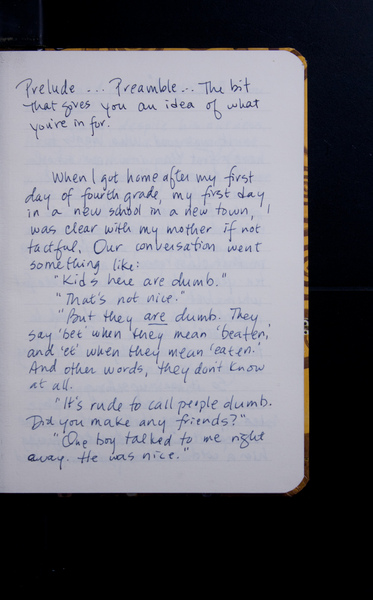 Prelude ... Preamble... The bit
that gives you an idea of what
you're in for.
When I got home after my first
day of fourth grade, my first day
in a new school in a new town, I
was clear with my mother if not
tactful. Our conversation went
something like:
"Kids here are dumb."
"That's not nice."
"But they are dumb. They
say 'bet' when they mean 'beaten,'
and 'et' when they mean 'eaten.'
And other words, they don't know
at all.
"It's rude to call people dumb.
Did you make any friends?"
"One boy talked to me right
away. He was nice."